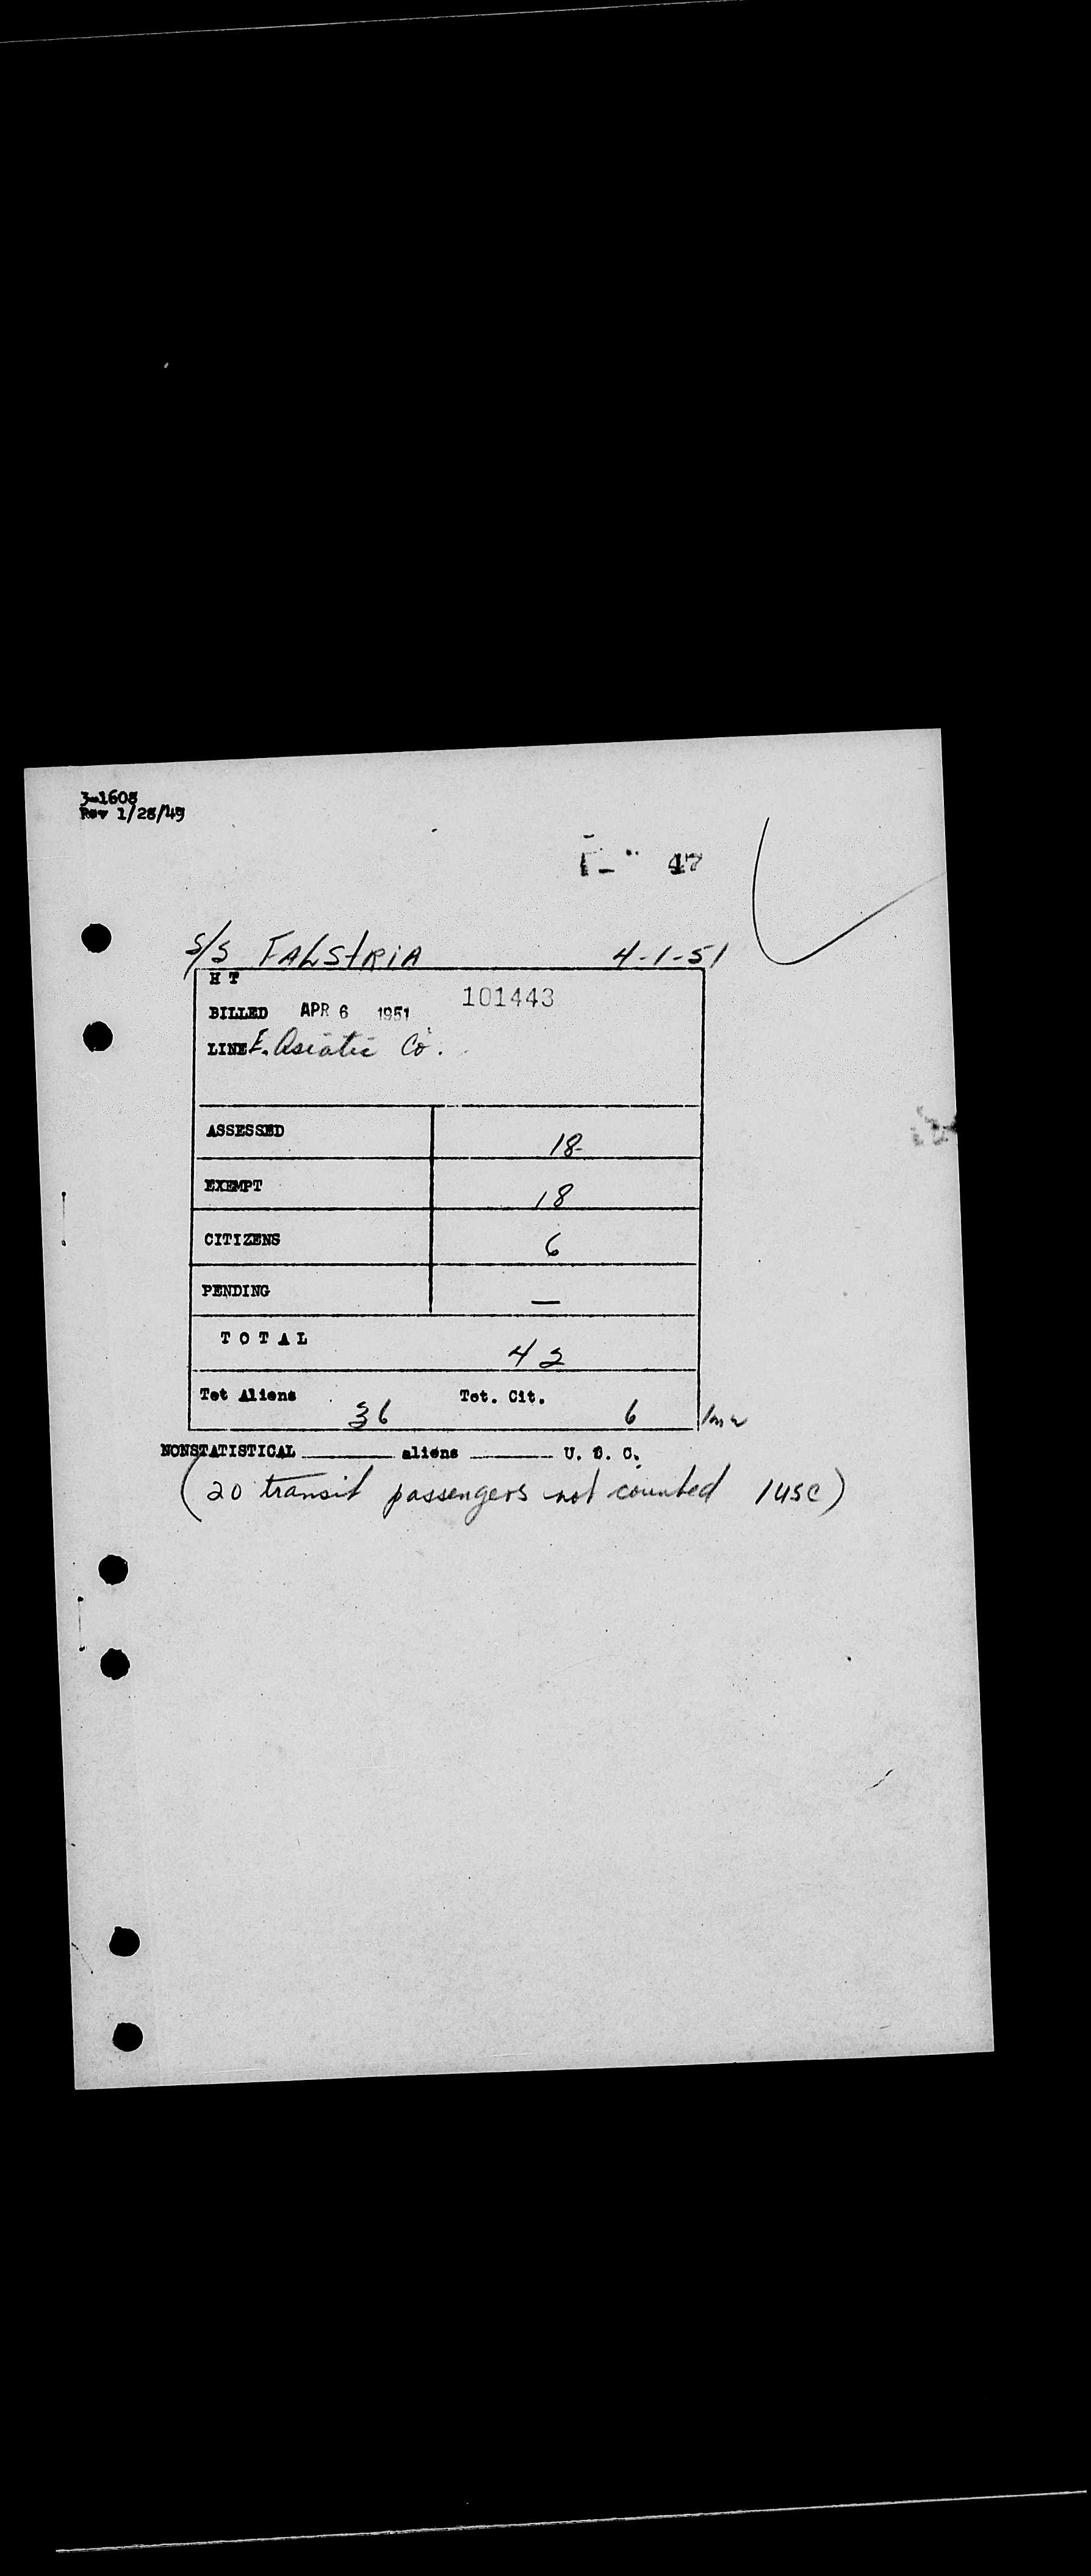 3-1608
Rev 1/28/49
47
S/S FALSTRIA 4-1-51
H T
BILLED APR 6 1951 101443
LINE E. Asiatic Co.
ASSESSED 18
EXEMPT 18
CITIZENS 6
PENDING —
TOTAL 42
Tot Aliens 36 Tot. Cit. 6
NONSTATISTICAL ______ aliens ______ U. S. C.
(20 transit passengers not counted 1USC)